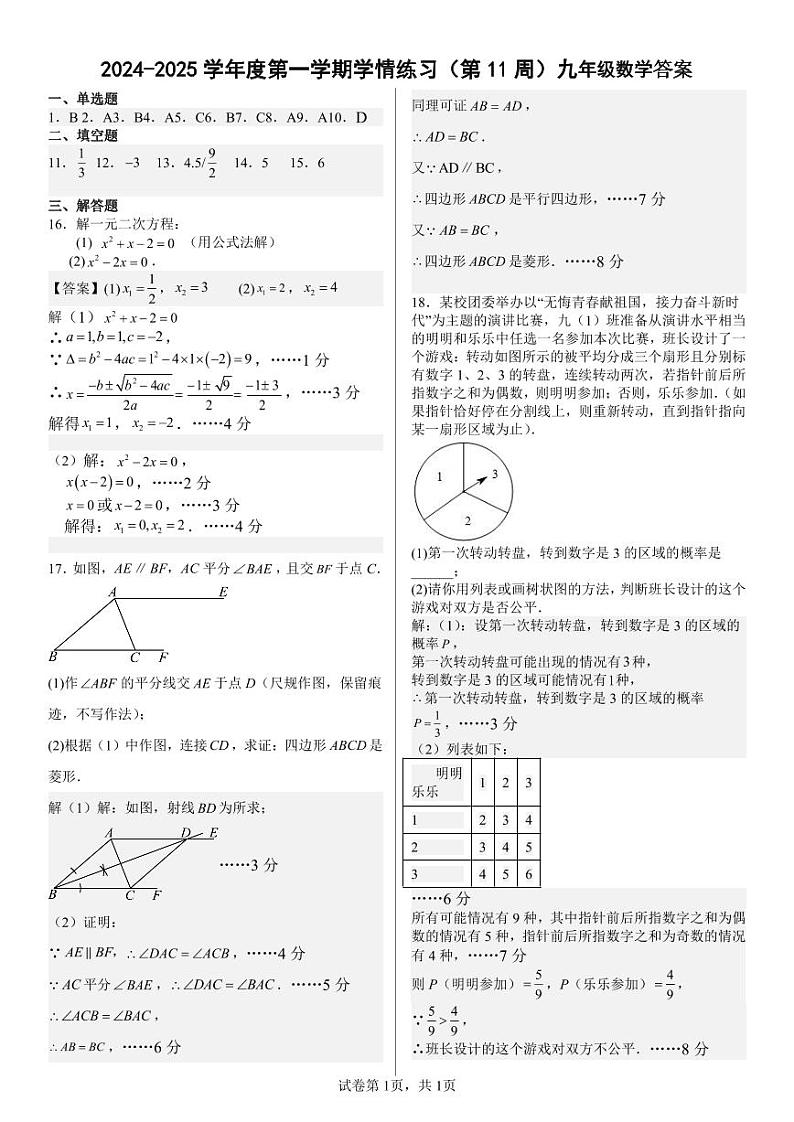 2024-2025 学年度第一学期学情练习（第 11 周）九年级数学答案
一、单选题
1．B 2．A3．B4．A5．C6．B7．C8．A9．A10．D
二、填空题
11．1/3 12．−3 13．4.5/9/2 14．5 15．6
三、解答题
16．解一元二次方程：
(1) x²+x−2=0 （用公式法解）
(2) x²−2x=0．
【答案】(1) x₁=1/2，x₂=3 (2) x₁=2，x₂=4
解（1）x²+x−2=0
∴a=1,b=1,c=−2，
∵Δ=b²−4ac=1²−4×1×(−2)=9，……1 分
∴x=(−b±√(b²−4ac))/2a=(−1±√9)/2=(−1±3)/2，……3 分
解得x₁=1，x₂=−2．……4 分
（2）解：x²−2x=0，
x(x−2)=0，……2 分
x=0或x−2=0，……3 分
解得：x₁=0,x₂=2．……4 分
17．如图，AE∥BF，AC 平分∠BAE，且交BF于点 C．
A E
B C F
(1)作∠ABF 的平分线交 AE 于点 D（尺规作图，保留痕
迹，不写作法）；
(2)根据（1）中作图，连接CD，求证：四边形 ABCD 是
菱形．
解（1）解：如图，射线BD为所求；
A D E
……3 分
B C F
（2）证明：
∵AE∥BF，∴∠DAC=∠ACB，……4 分
∵AC平分∠BAE，∴∠DAC=∠BAC．……5 分
∴∠ACB=∠BAC，
∴AB=BC，……6 分
同理可证AB=AD，
∴AD=BC．
又∵AD∥BC，
∴四边形ABCD是平行四边形，……7 分
又∵AB=BC，
∴四边形ABCD是菱形．……8 分
18．某校团委举办以“无悔青春献祖国，接力奋斗新时
代”为主题的演讲比赛，九（1）班准备从演讲水平相当
的明明和乐乐中任选一名参加本次比赛，班长设计了一
个游戏：转动如图所示的被平均分成三个扇形且分别标
有数字 1、2、3 的转盘，连续转动两次，若指针前后所
指数字之和为偶数，则明明参加；否则，乐乐参加．（如
果指针恰好停在分割线上，则重新转动，直到指针指向
某一扇形区域为止）．
1 3
2
(1)第一次转动转盘，转到数字是 3 的区域的概率是
______；
(2)请你用列表或画树状图的方法，判断班长设计的这个
游戏对双方是否公平．
解：（1）：设第一次转动转盘，转到数字是 3 的区域的
概率P，
第一次转动转盘可能出现的情况有3种，
转到数字是 3 的区域可能情况有1种，
∴第一次转动转盘，转到数字是 3 的区域的概率
P=1/3，……3 分
（2）列表如下：
明明
乐乐 1 2 3
1 2 3 4
2 3 4 5
3 4 5 6
……6 分
所有可能情况有 9 种，其中指针前后所指数字之和为偶
数的情况有 5 种，指针前后所指数字之和为奇数的情况
有 4 种，……7 分
则 P（明明参加）=5/9，P（乐乐参加）=4/9，
∵5/9>4/9，
∴班长设计的这个游戏对双方不公平．……8 分
试卷第 1页，共 1页